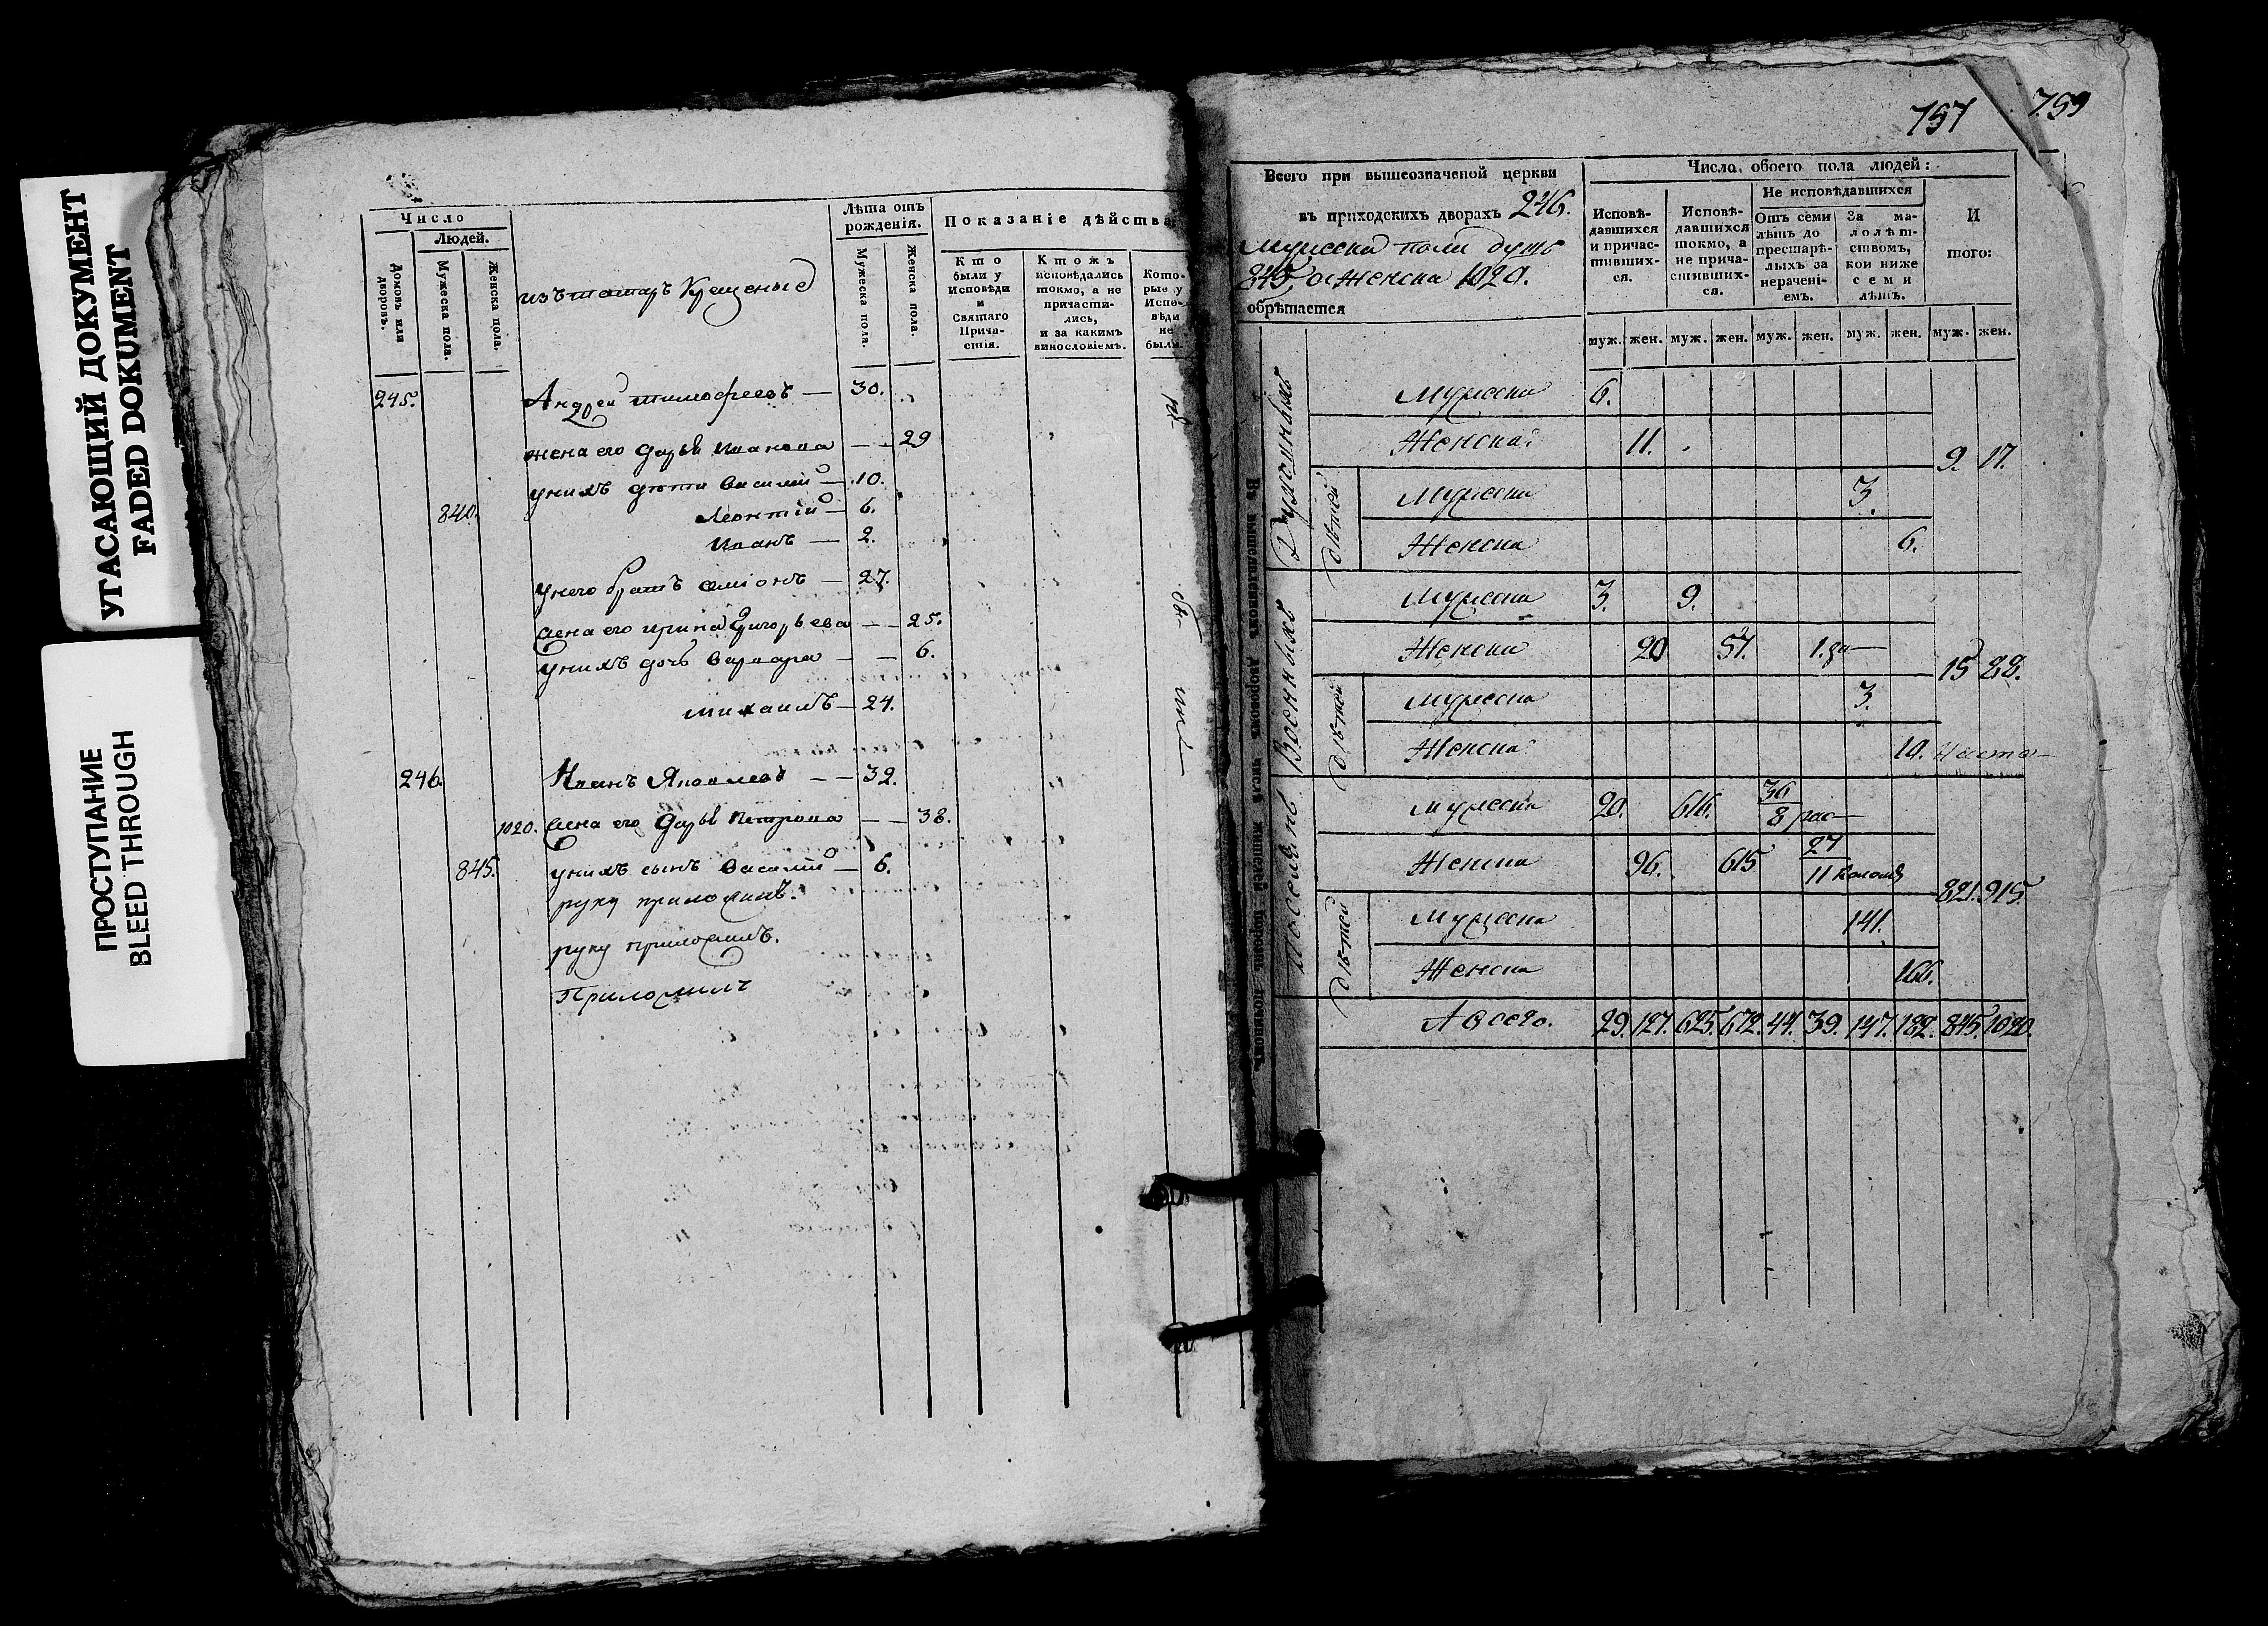 УГАСАЮЩИЙ ДОКУМЕНТ
FADED DOKUMENT
ПРОСТУПАНИЕ
BLEED THROUGH
Число
Людей.
Домовъ или дворовъ.
Мужеска пола.
Женска пола.
изъ татаръ Крещеные
Лѣта отъ рожденія.
Мужеска пола.
Женска пола.
Показаніе дѣйства
Кто были у Исповѣди и Святаго Причастія.
Ктожъ исповѣдались токмо, а не причастились, и за какимъ винословіемъ.
Которые у Исповѣди не были.
245. Андрей Тимофеевъ — 30.
жена его Дарья Иванова — 29
у нихъ дети Василий — 10.
840. Леонтий — 6.
Иванъ — 2.
у него братъ Семионъ — 27.
жена его Ирина Григорьева — 25.
у нихъ дочь Варвара — 6.
Михаилъ — 24.
246. Иванъ Яковлевъ — 32.
1020. жена его Дарья Петрова — 38.
845. у нихъ сынъ Василий — 6.
руку приложилъ.
руку приложилъ.
Приложилъ
757 759
Всего при вышеозначеной церкви
въ приходскихъ дворахъ 246.
Мужеска пола душъ
845, а женска 1020.
обрѣтается
Число обоего пола людей:
Исповѣдавшихся и причастившихся.
Исповѣдавшихся токмо, а не причастившихся.
Не исповѣдавшихся
Отъ семи лѣтъ до престарѣлыхъ за нераченіемъ.
За малолѣтствомъ, кои ниже семи лѣтъ.
И того:
муж. жен. муж. жен. муж. жен. муж. жен. муж. жен.
Духовныхъ
Мужеска 6.
Женска 11.
9. 17.
детей
Мужеска 3.
Женска 6.
Военныхъ
Мужеска 3. 9.
Женска 20 57. 1.
15 88.
детей
Мужеска 3.
Женска 10.
Поселянъ
Мужеска 20. 616. 36
8 рас—
Женска 96. 615 27
11
821. 915.
детей
Мужеска 141.
Женска 166.
А всего. 29. 127. 625. 672. 44. 39. 147. 182. 845. 1020.